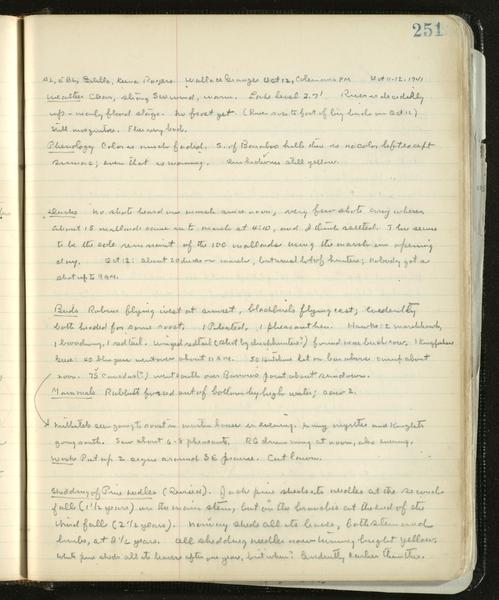 251
AL, EBL, Estella, Reeva Rogers Wallace Grange Oct 12, Coleman PM Oct 11-12, 1941
Weather Clear, strong SW wind, warm. Lake level 2.7' River is decidedly
up - nearly flood stage. No frost yet (River rose to foot of big birch on Oct 11)
Still mosquitoes. Flies very bad.
Phenology Color is much faded. S. of Baraboo hills there is no color left except
sumac; even that is waning. still yellow.
Ducks No shots heard on marsh since noon; very few shots anywhere.
About 15 mallards came into marsh at 4:10, and I think settled. This seems
to be the sole remnant of the 100 mallards using the marsh on opening
day. Oct 12: about 20 ducks on marsh, but usual lot of hunters; nobody got a
shot up to 9 AM.
Birds Robins flying west at sunset, blackbirds flying east; evidently
both headed for some roost. 1 Pileated, 1 pheasant hen. Hawks: 2 marsh hawks,
1 broadwing, 1 redtail. Winged redtail (shot by duck hunters?) found near 1 kingfisher
Geese: 20 went over about 11 AM. 50 on came up about
noon. 75 Canadas(?) went south over Barrows' point about sundown.
Mammals Rabbits forced out of bottoms by high water; saw 2.
Millstels saw going to roost in martin houses in evening. Many myrtles and kinglets
going south. Saw about 6-8 pheasants. RG drumming at noon, also evening.
Work Put up 2 signs around SE prairie. Cut lawn.
Shedding of Pine needles (Revised). Jack pine sheds its needles at the second
fall (1½ years) on the main stem, but on the branches at the end of the
third fall (2½ years). Norway sheds all its leaves, both stem and
limbs, at 2½ years. All shedding needles now turning bright yellow.
White pine sheds all its leaves after one year, but when? Evidently earlier than this.